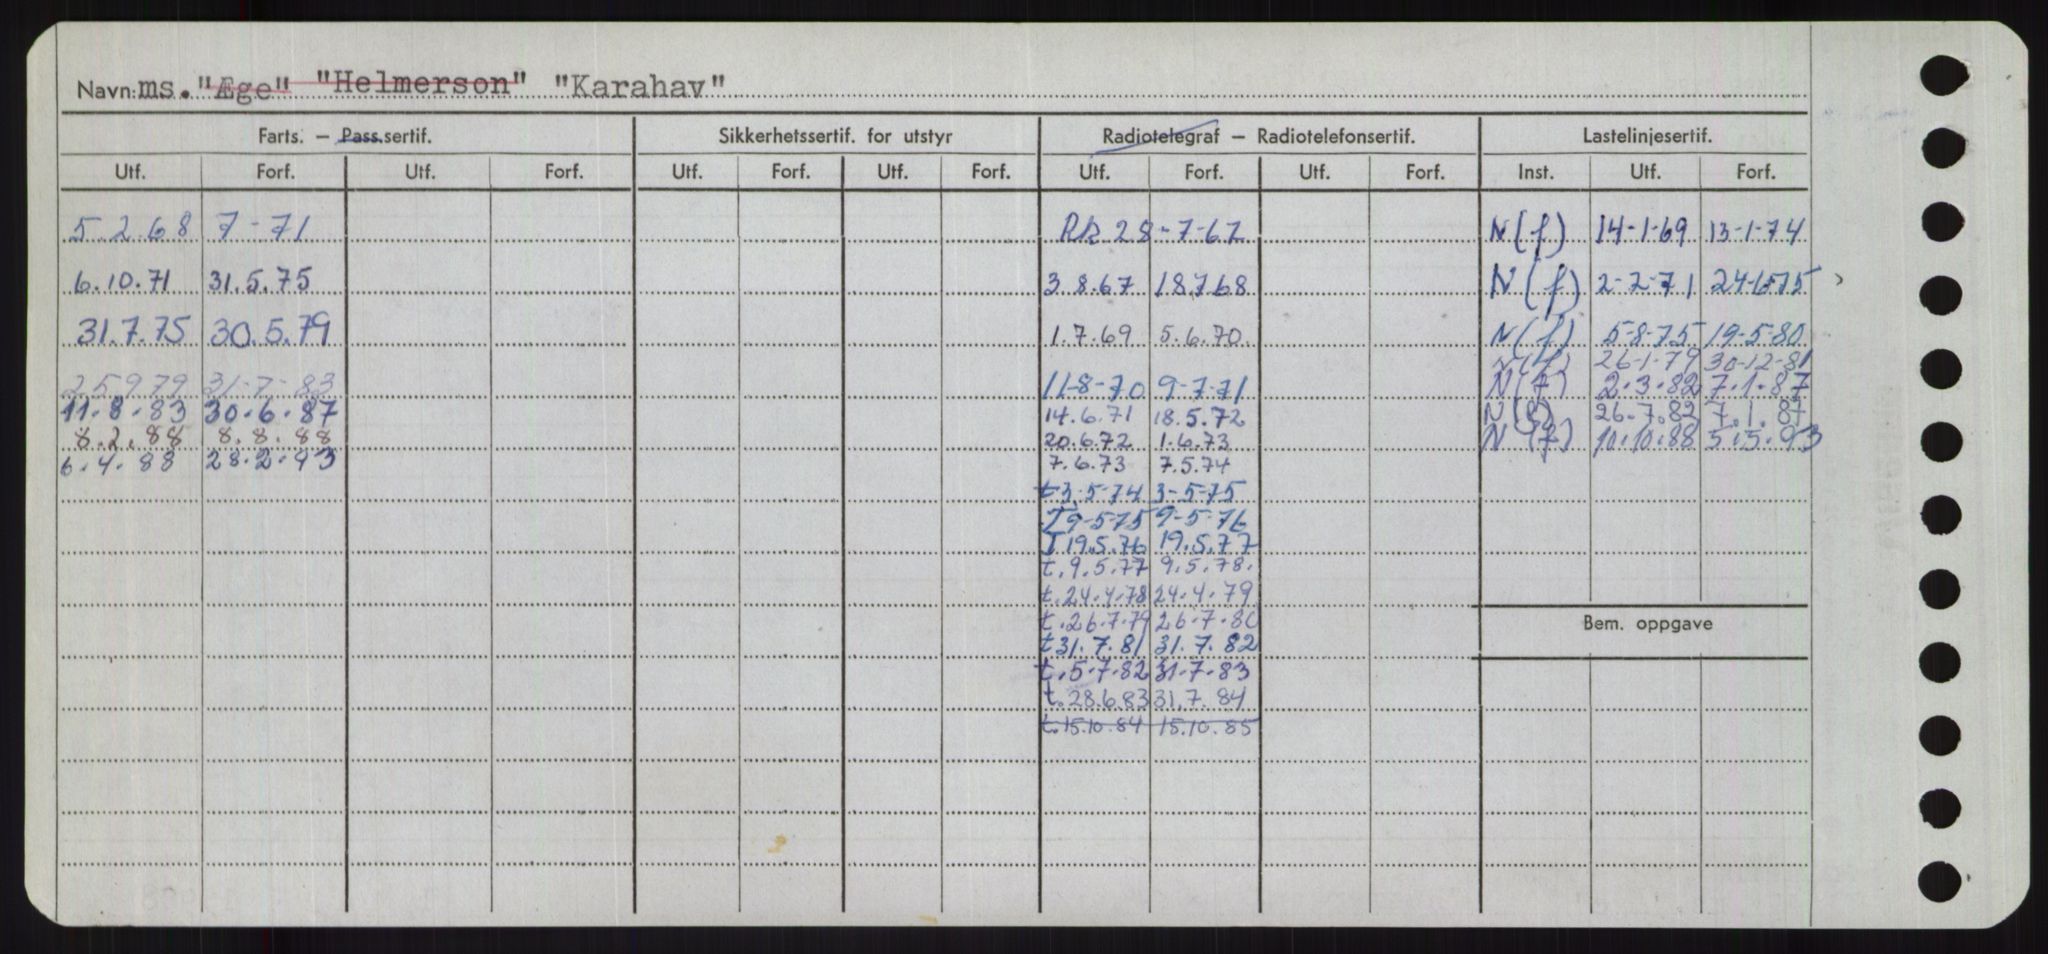 Navn: ms. "Æge" "Helmerson" "Karahav"
Farts. – Pass.sertif. Sikkerhetssertif. for utstyr Radiotelegraf – Radiotelefonsertif. Lastelinjesertif.
Utf. Forf. Utf. Forf. Utf. Forf. Utf. Forf. Utf. Forf. Utf. Forf. Inst. Utf. Forf.
5 2 68 7 - 71 28-7-67 N(f) 14-1-69 13-1-74
6.10.71 31.5.75 3 8.67 18768 N(f) 2-2-71 24-6-75
31.7.75 30.5.79 1.7.69 5.6.70. N(f) 5-8-75 19-5-80
N(f) 26-1-79 30-12-81
25979 31-7-83 11-8-70 9-7-71 N(f) 2.3.82 7.1.87
11.8.83 30.6.87 14.6.71 18.5.72 26.7.82 7.1.87
8.2.88 8.8.88 20.6.72 1.6.73 N(f) 10.10.88 5.5.93
6.4.88 28.2.93 7.6.73 7.5.74
t 3.5-74 3-5-75
T 9-5-75 9-5-76
T 19.5.76 19.5.77
t. 9.5.77 9.5.78.
t. 24.4.78 24.4.79
t. 26.7.79 26.7.80
Bem. oppgave
t 31.7.81 31.7.82
t. 5.7.82 31.7.83
t. 28.6.83 31.7.84
t. 15.10.84 15.10.85